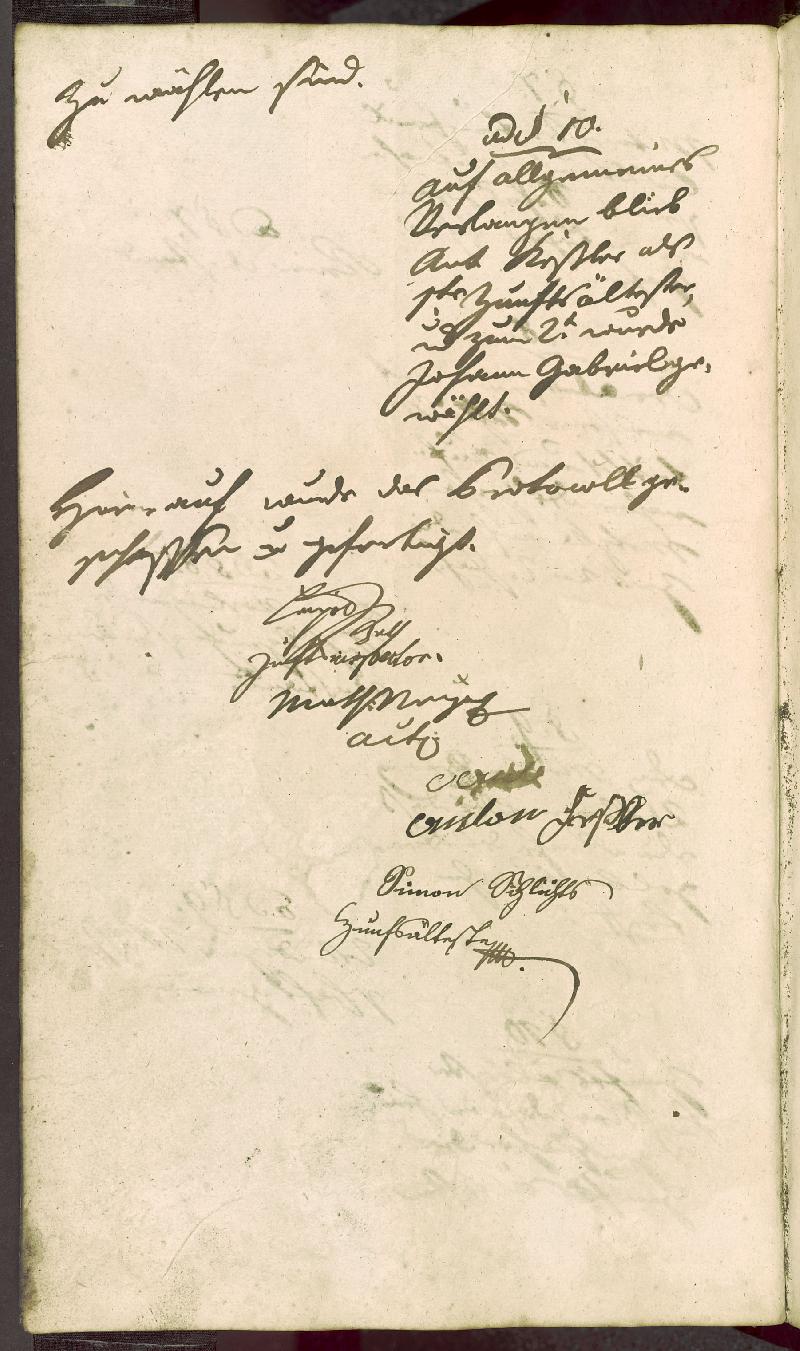 zu wählen sind.
ad 10.
auf allgemeines
Verlangen blieb
Ant Keßler als
1te Zunftsältester,
u zum 2t wurde
Johann Gabriel ge-
wählt.
Hierauf wurde das Protocoll ge-
schlossen u gefertigt.
Math.
Anton Keßler
Simon Schlichts
Zunfsälteste